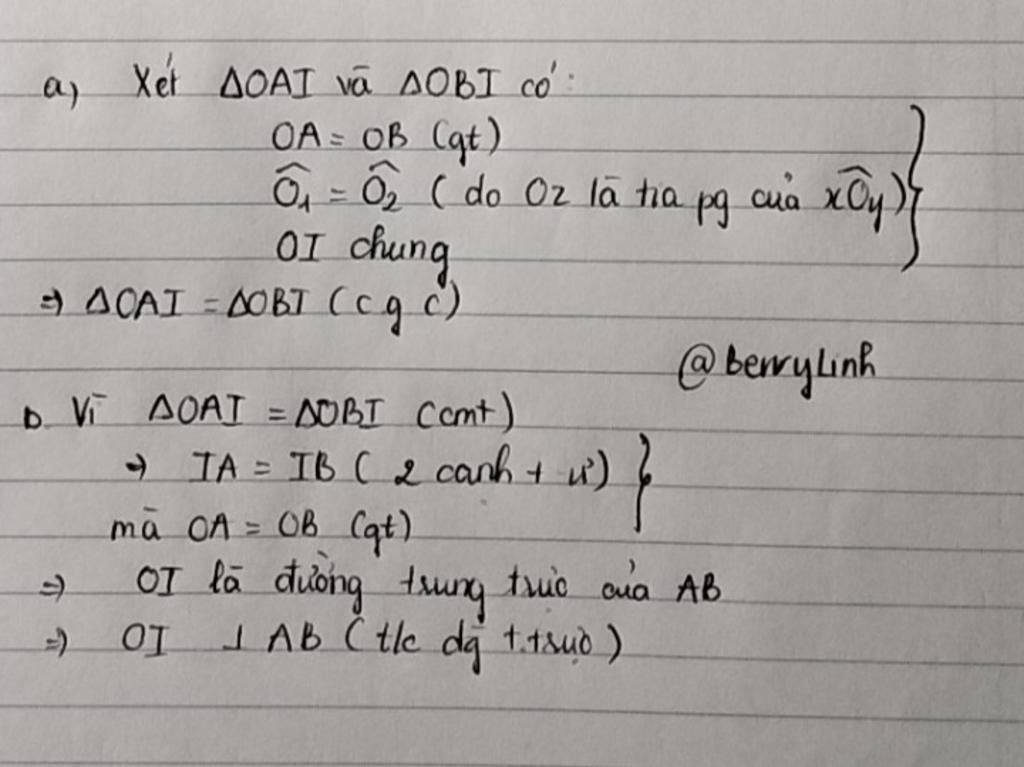 a) Xét ΔOAI và ΔOBI có:
OA = OB (gt)
Ô₁ = Ô₂ (do Oz là tia pg của xÔy)
OI chung
⇒ ΔOAI = ΔOBI (c g c)
@berrylinh
b. Vì ΔOAI = ΔOBI (cmt)
→ IA = IB (2 canh t ư)
mà OA = OB (gt)
⇒ OI là đường trung trực của AB
⇒ OI ⊥ AB (t/c dg̃ t.trực)